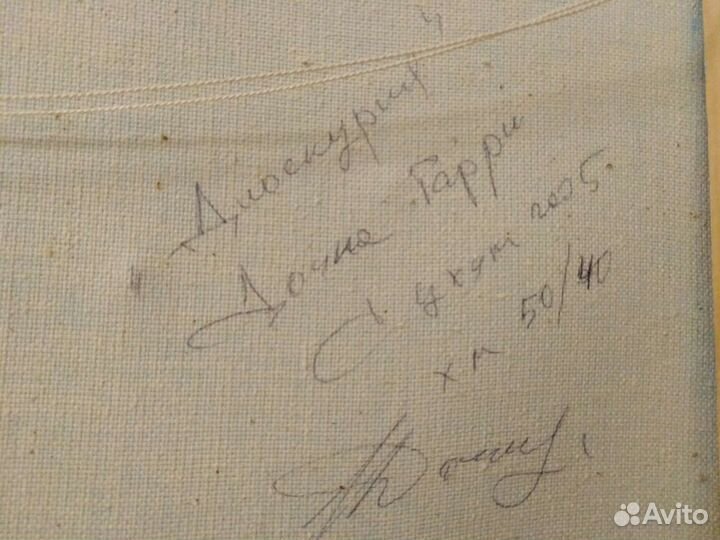 "Диоскурия"
Дочиа Гарри
Сухум 2005
хм 50/40
Avito